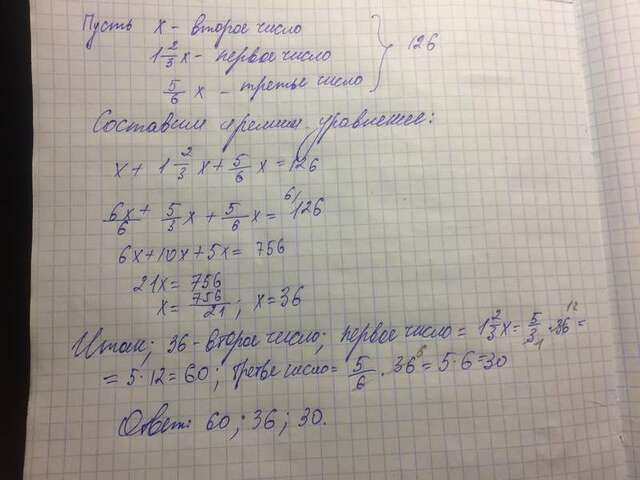 Пусть x - второе число
1 2/3 x - первое число } 126
5/6 x - третье число
Составим уравнение:
x + 1 2/3 x + 5/6 x = 126
6x/6 + 5/3 x + 5/6 x = 126 6/
6x + 10x + 5x = 756
21x = 756
x = 756/21 ; x = 36
Итак, 36 - второе число; первое число = 1 2/3 x = 5/3 · 36 =
= 5·12 = 60; третье число = 5/6 · 36 = 5·6 = 30
Ответ: 60; 36; 30.